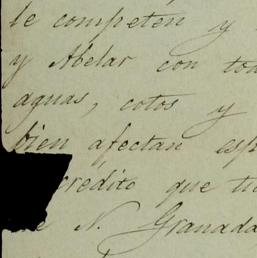 le competen y
y Abelar con tod
aguas, cotos y
bien afectan esp
crédito que ti
de N. Granada